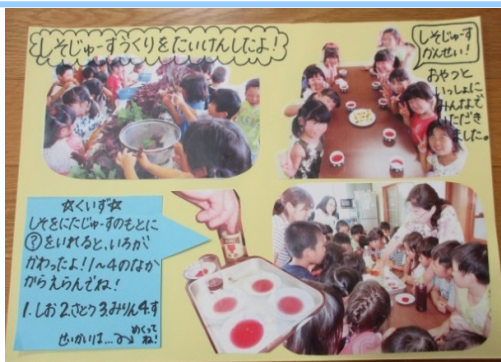 しそじゅーすづくりをたいけんしたよ!
しそじゅーす
かんせい!
おやつと
いっしょに
みんなで
いただき
ました。
☆くいず☆
しそをにたじゅーすのもとに
?をいれると、いろが
かわったよ!1~4のなか
からえらんでね!
1.しお2.さとう3.みりん4.す
せいかいは…
めくって
ね!